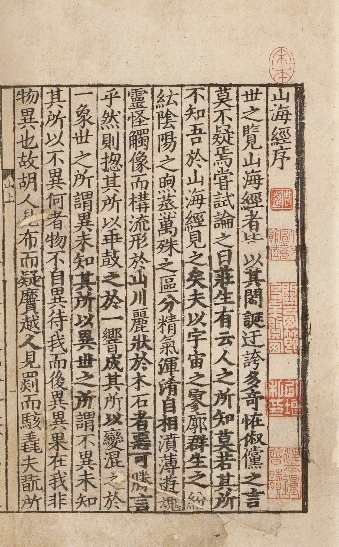 山海經序
世之覽山海經者皆以其閎誕迂誇多奇怪俶儻之言
莫不疑焉嘗試論之曰莊生有云人之所知莫若其所
不知吾於山海經見之矣夫以宇宙之寥廓群生之紛
紜陰陽之煦蒸萬殊之區分精氣渾淆自相濆薄遊魂
靈怪觸像而構流形於山川麗狀於木石者惡可勝言
乎然則揔其所以乖鼓之於一響成其所以變混之於
一象世之所謂異未知其所以異世之所謂不異未知
其所以不異何者物不自異待我而後異異果在我非
物異也故胡人見布而疑黂越人見罽而駭毳夫翫所